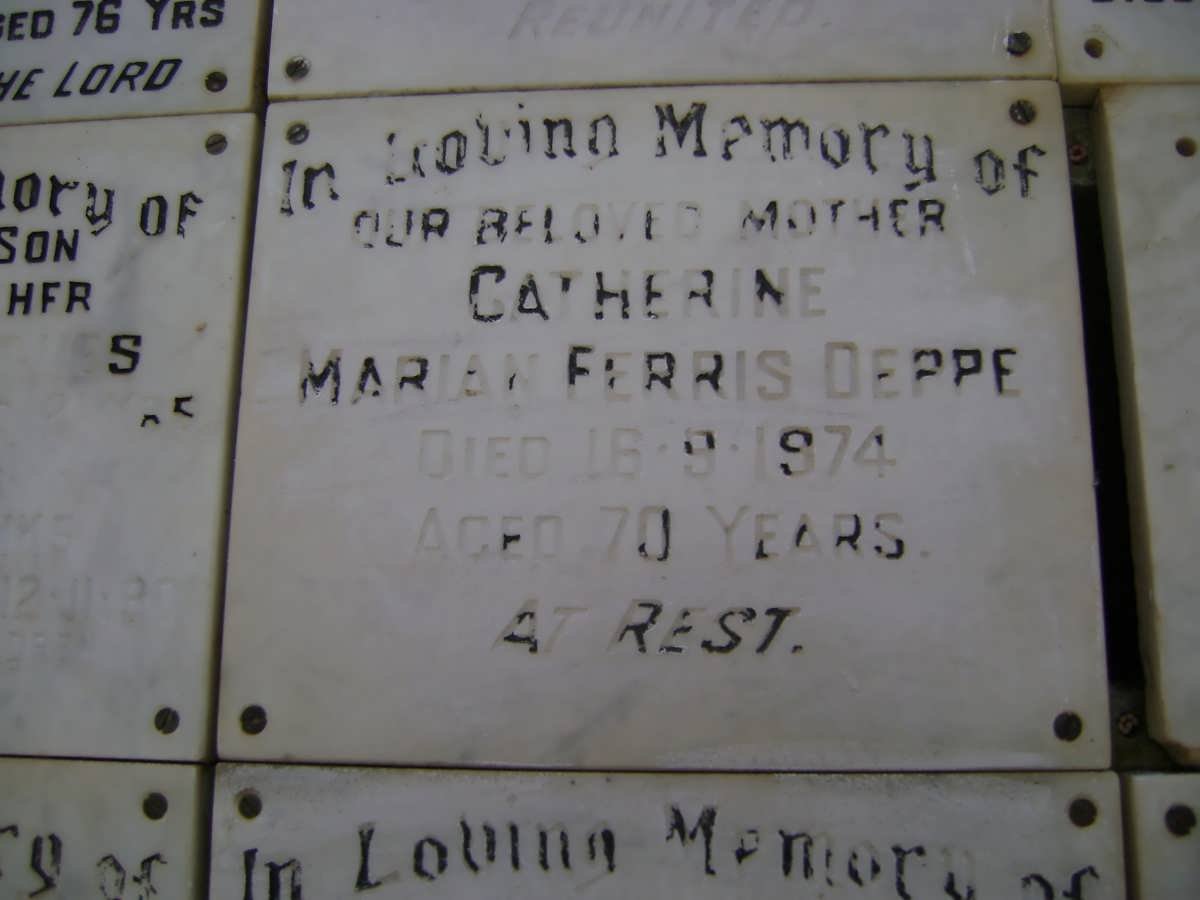 GED 76 YRS
HE LORD
REUNITED.
In Loving Memory of
OUR BELOVED MOTHER
CATHERINE
MARIAN FERRIS DEPPE
DIED 16·9·1974
AGED 70 YEARS.
AT REST.
mory of
SON
HER
S
12·11·
ry of
In Loving Memory of